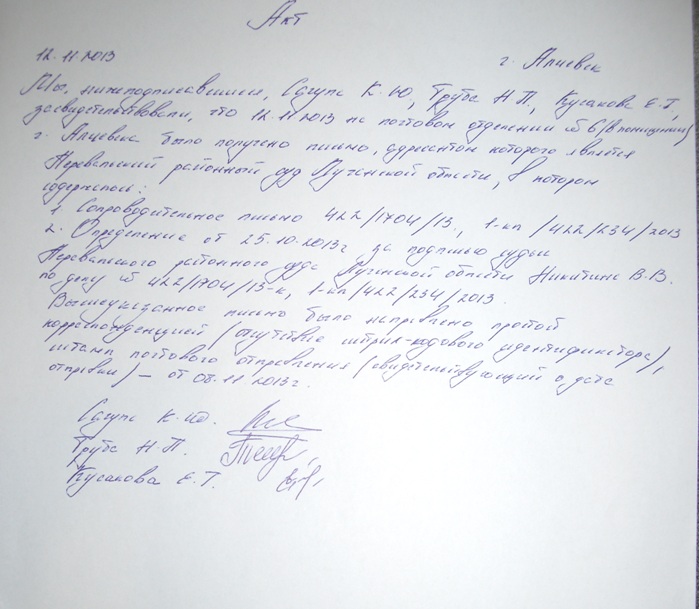 Акт
12.11.2013 г. Алчевск
Мы, нижеподписавшиеся, Сагула К.Ю, Труба Н.П, Кусакова Е.Т,
засвидетельствовали, что 12.11.2013 на почтовом отделении № 6 (в помещении)
г. Алчевска было получено письмо, адресатом которого является
Перевальский районный суд Луганской области, в котором
содержалось:
1. Сопроводительное письмо 422/1704/13, 1-кп/422/234/2013
2. Определение от 25.10.2013г за подписью судьи
Перевальского районного суда Луганской области Никитина В.В.
по делу № 422/1704/13-к, 1-кп/422/234/2013.
Вышеуказанное письмо было направлено простой
корреспонденцией (отсутствие штрих-кодового идентификатора),
штамп почтового отправления (свидетельствующий о дате
отправки) – от 08.11.2013г.
К.Ю.
Труба Н.П.
Кусакова Е.Т.